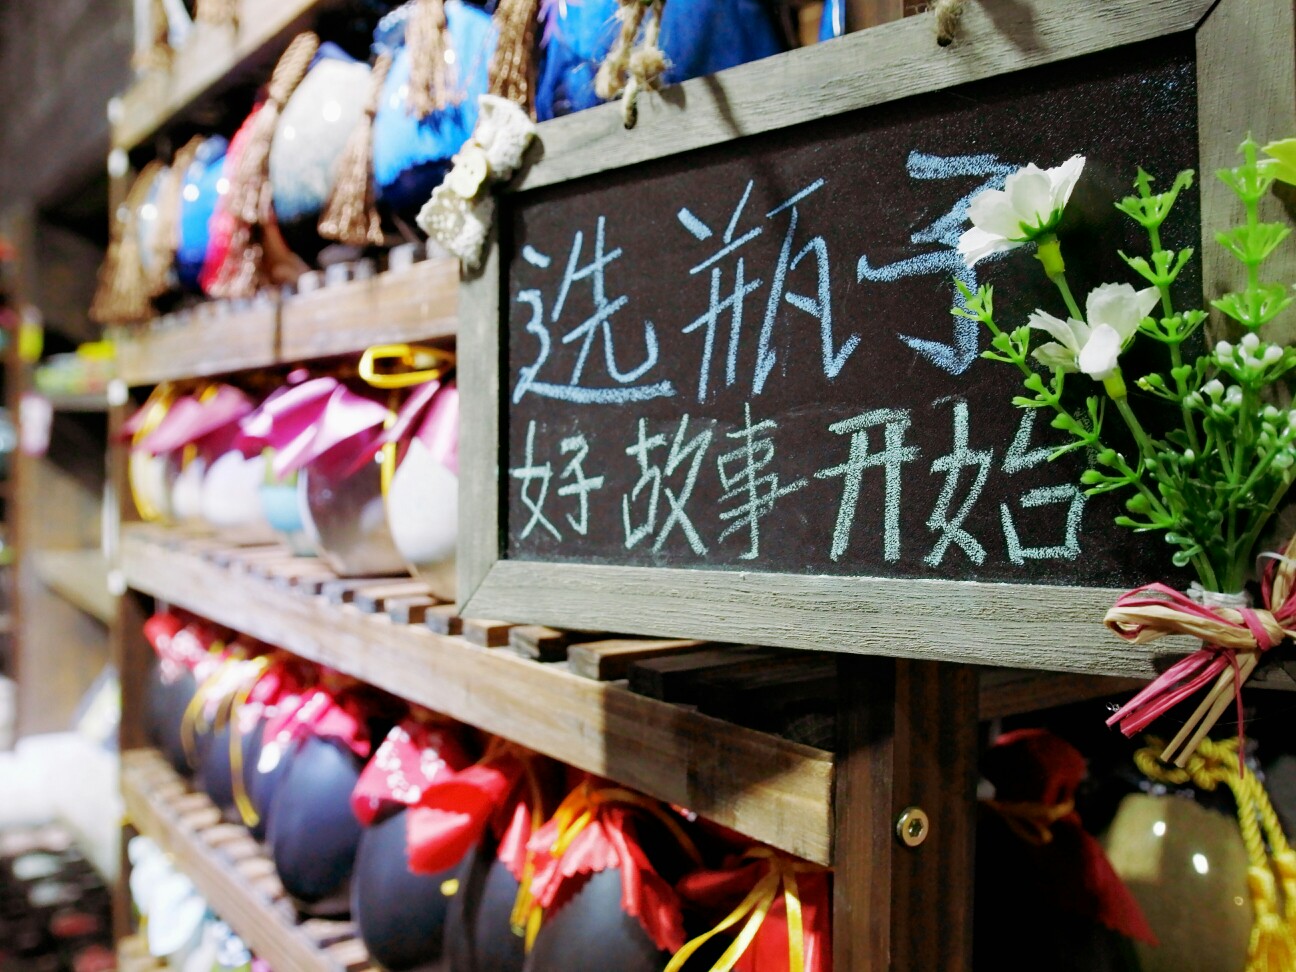 选瓶子
好故事开始